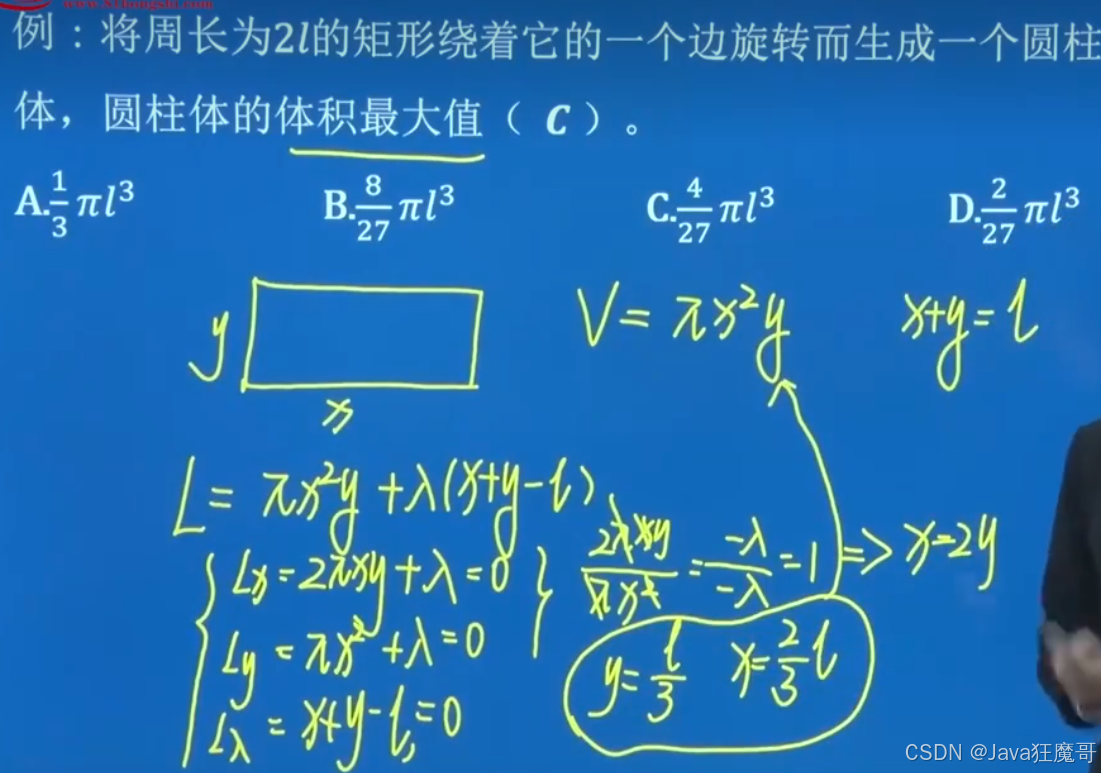 www.
例：将周长为2l的矩形绕着它的一个边旋转而生成一个圆柱
体，圆柱体的体积最大值（ C ）。
A.1/3 πl³ B.8/27 πl³ C.4/27 πl³ D.2/27 πl³
y
x
V = πx²y x+y=l
L = πx²y + λ(x+y-l)
Lx = 2πxy + λ = 0
Ly = πx² + λ = 0
Lλ = x+y-l = 0
2πxy/πx² = -λ/-λ = 1 => x=2y
y = l/3 x = 2/3 l
CSDN @Java狂魔哥